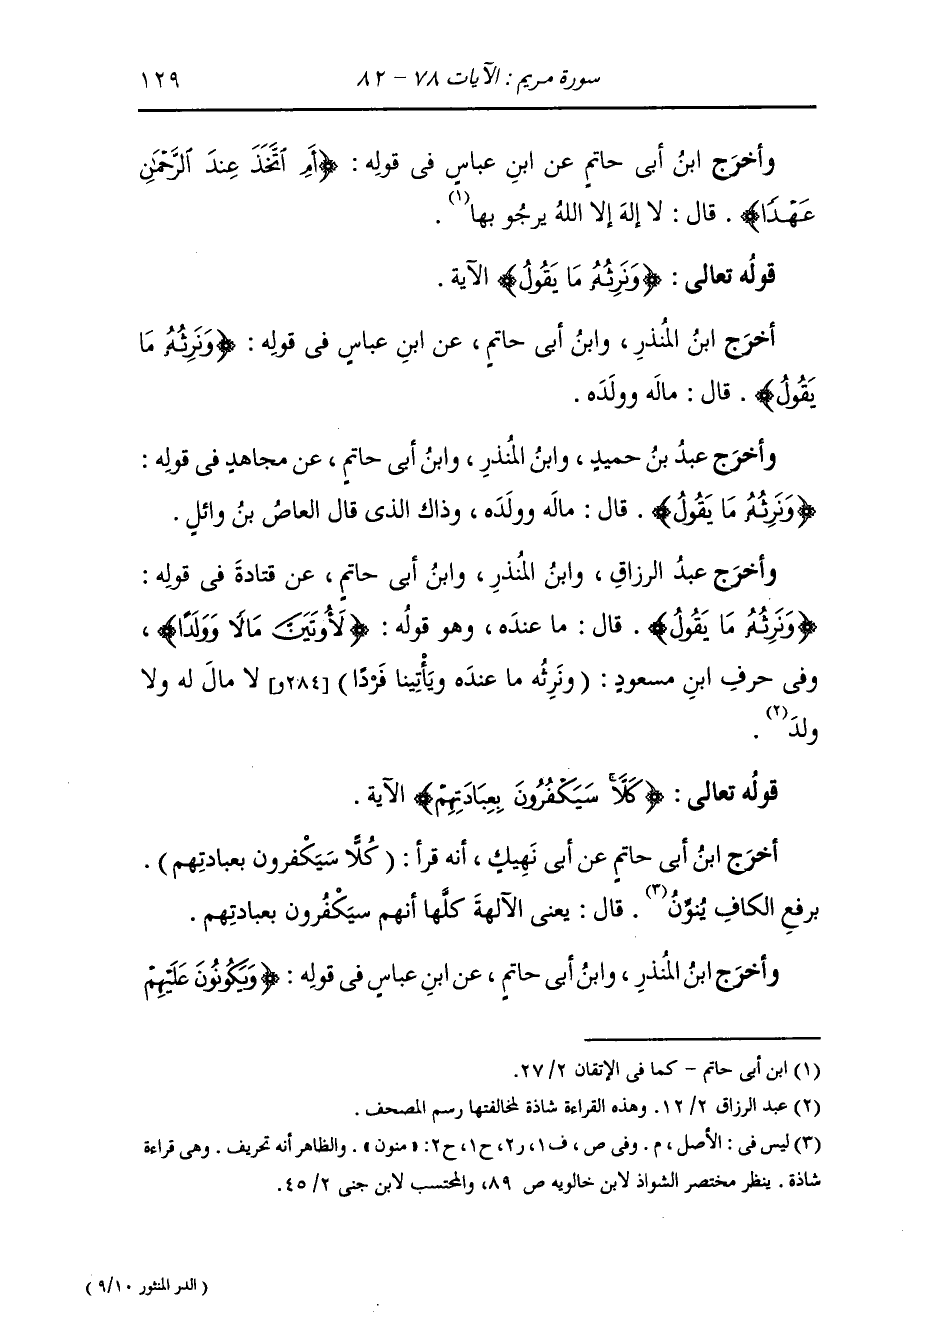 سورة مريم : الآيات ٧٨ - ٨٢ ١٢٩
وأخرَج ابنُ أبى حاتمٍ عن ابنِ عباسٍ فى قولِه : ﴿أَمِ ٱتَّخَذَ عِندَ ٱلرَّحْمَٰنِ
عَهْدًا﴾ . قال : لا إلهَ إلا اللهُ يرجُو بها(١) .
قولُه تعالى : ﴿وَنَرِثُهُۥ مَا يَقُولُ﴾ الآية .
أخرَج ابنُ المُنذرِ ، وابنُ أبى حاتمٍ ، عن ابنِ عباسٍ فى قولِه : ﴿وَنَرِثُهُۥ مَا
يَقُولُ﴾ . قال : مالَه وولَدَه .
وأخرَج عبدُ بنُ حميدٍ ، وابنُ المُنذرِ ، وابنُ أبى حاتمٍ ، عن مجاهدٍ فى قولِه :
﴿وَنَرِثُهُۥ مَا يَقُولُ﴾ . قال : مالَه وولَدَه ، وذاك الذى قال العاصُ بنُ وائلٍ .
وأخرَج عبدُ الرزاقِ ، وابنُ المُنذرِ ، وابنُ أبى حاتمٍ ، عن قتادةَ فى قولِه :
﴿وَنَرِثُهُۥ مَا يَقُولُ﴾ . قال : ما عندَه ، وهو قولُه : ﴿لَأُوتَيَنَّ مَالًا وَوَلَدًا﴾ ،
وفى حرفِ ابنِ مسعودٍ : ( ونَرِثُه ما عندَه ويَأْتِينا فَرْدًا ) [٢٨٤و] لا مالَ له ولا
ولدَ(٢) .
قولُه تعالى : ﴿كَلَّاۚ سَيَكْفُرُونَ بِعِبَادَتِهِمْ﴾ الآية .
أخرَج ابنُ أبى حاتمٍ عن أبى نَهِيكٍ ، أنه قرأ : ( كُلًّا سَيَكْفرون بعبادتِهم ) .
برفعِ الكافِ يُنوِّنُ(٣) . قال : يعنى الآلهةَ كلَّها أنهم سيَكْفُرون بعبادتِهم .
وأخرَج ابنُ المُنذرِ ، وابنُ أبى حاتمٍ ، عن ابنِ عباسٍ فى قولِه : ﴿وَيَكُونُونَ عَلَيْهِمْ
(١) ابن أبى حاتم - كما فى الإتقان ٢/ ٢٧.
(٢) عبد الرزاق ٢/ ١٢. وهذه القراءة شاذة لمخالفتها رسم المصحف .
(٣) ليس فى : الأصل ، م . وفى ص ، ف١، ر٢، ح١، ح٢: « منون » . والظاهر أنه تحريف . وهى قراءة
شاذة . ينظر مختصر الشواذ لابن خالويه ص ٨٩، والمحتسب لابن جنى ٢/ ٤٥.
( الدر المنثور ٩/١٠ )